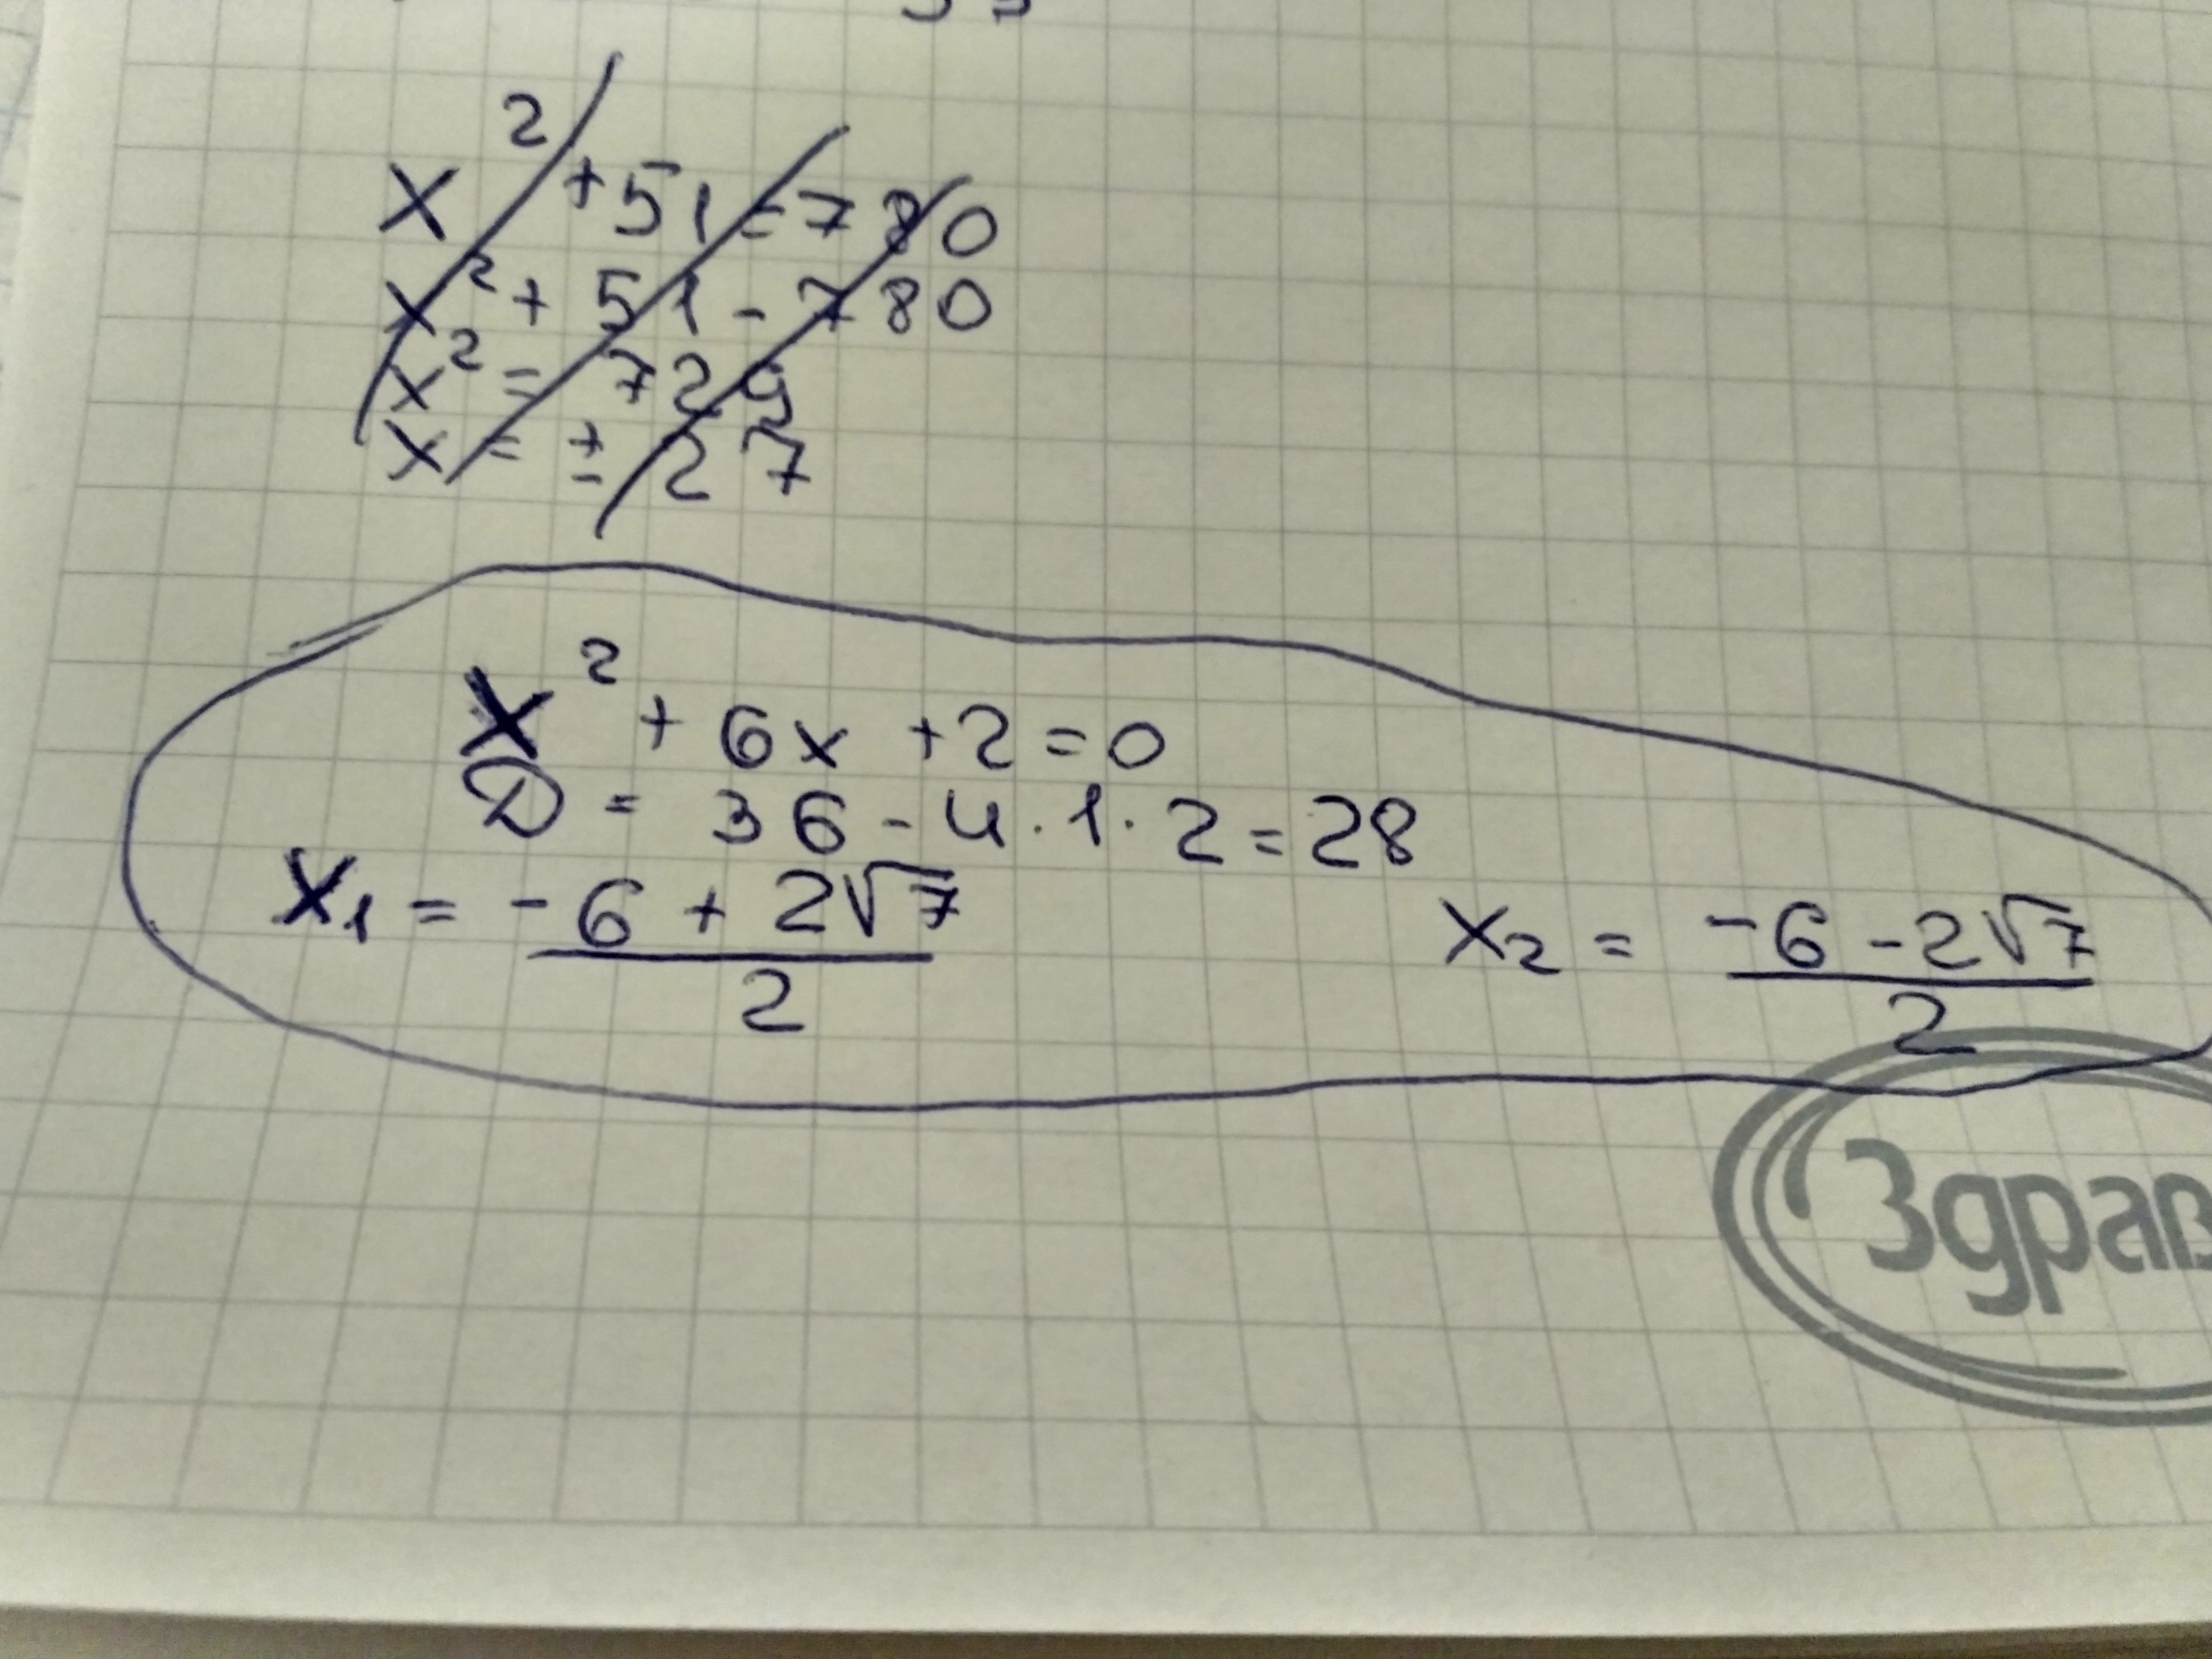 x² + 51 = 780
x² + 51 - 780
x² = 729
x = ± 27
x² + 6x + 2 = 0
D = 36 - 4 · 1 · 2 = 28
x₁ = (-6 + 2√7)/2 x₂ = (-6 - 2√7)/2
Здрав